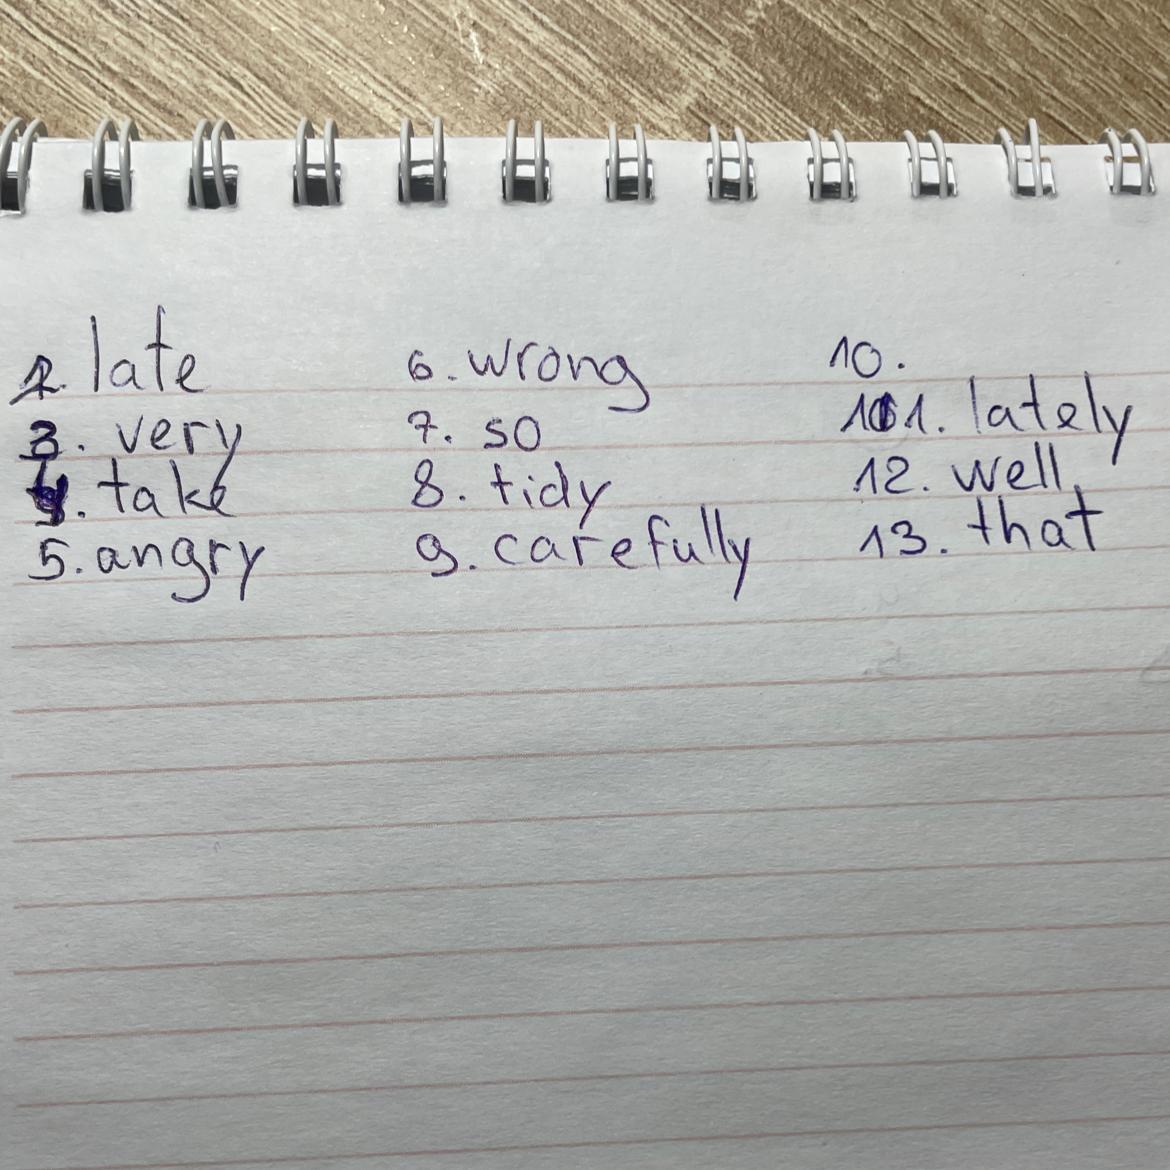 2. late
3. very
4. take
5. angry
6. wrong
7. so
8. tidy
9. carefully
10.
11. lately
12. well
13. that